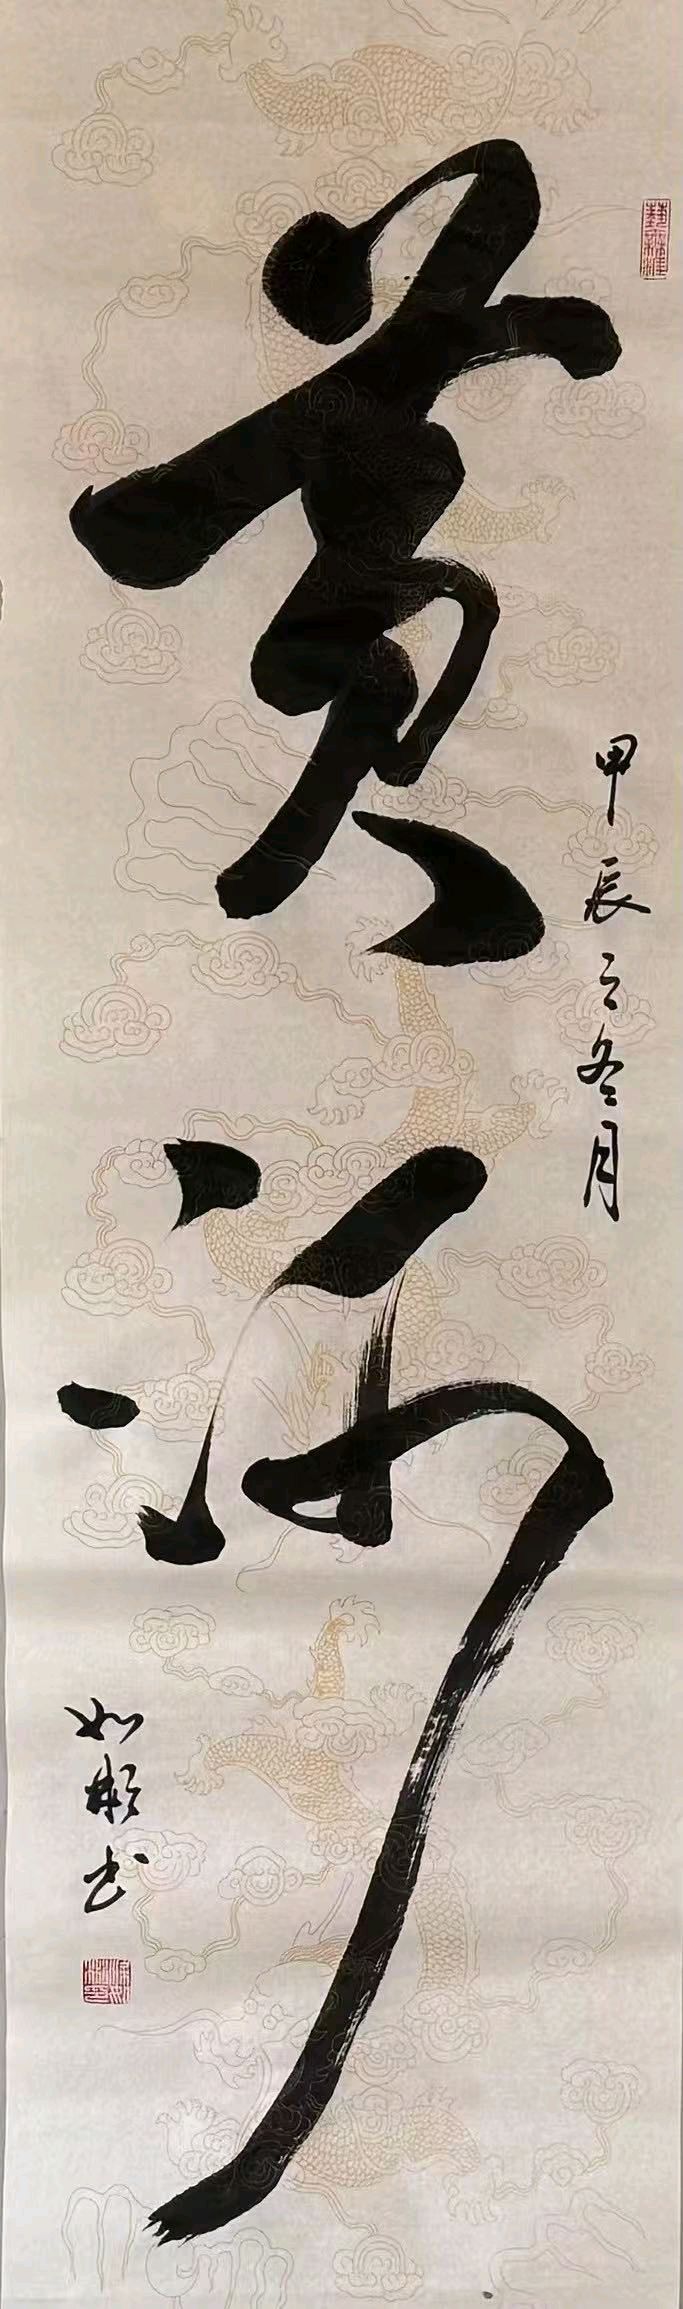 黄河
甲辰之冬月
如彬书